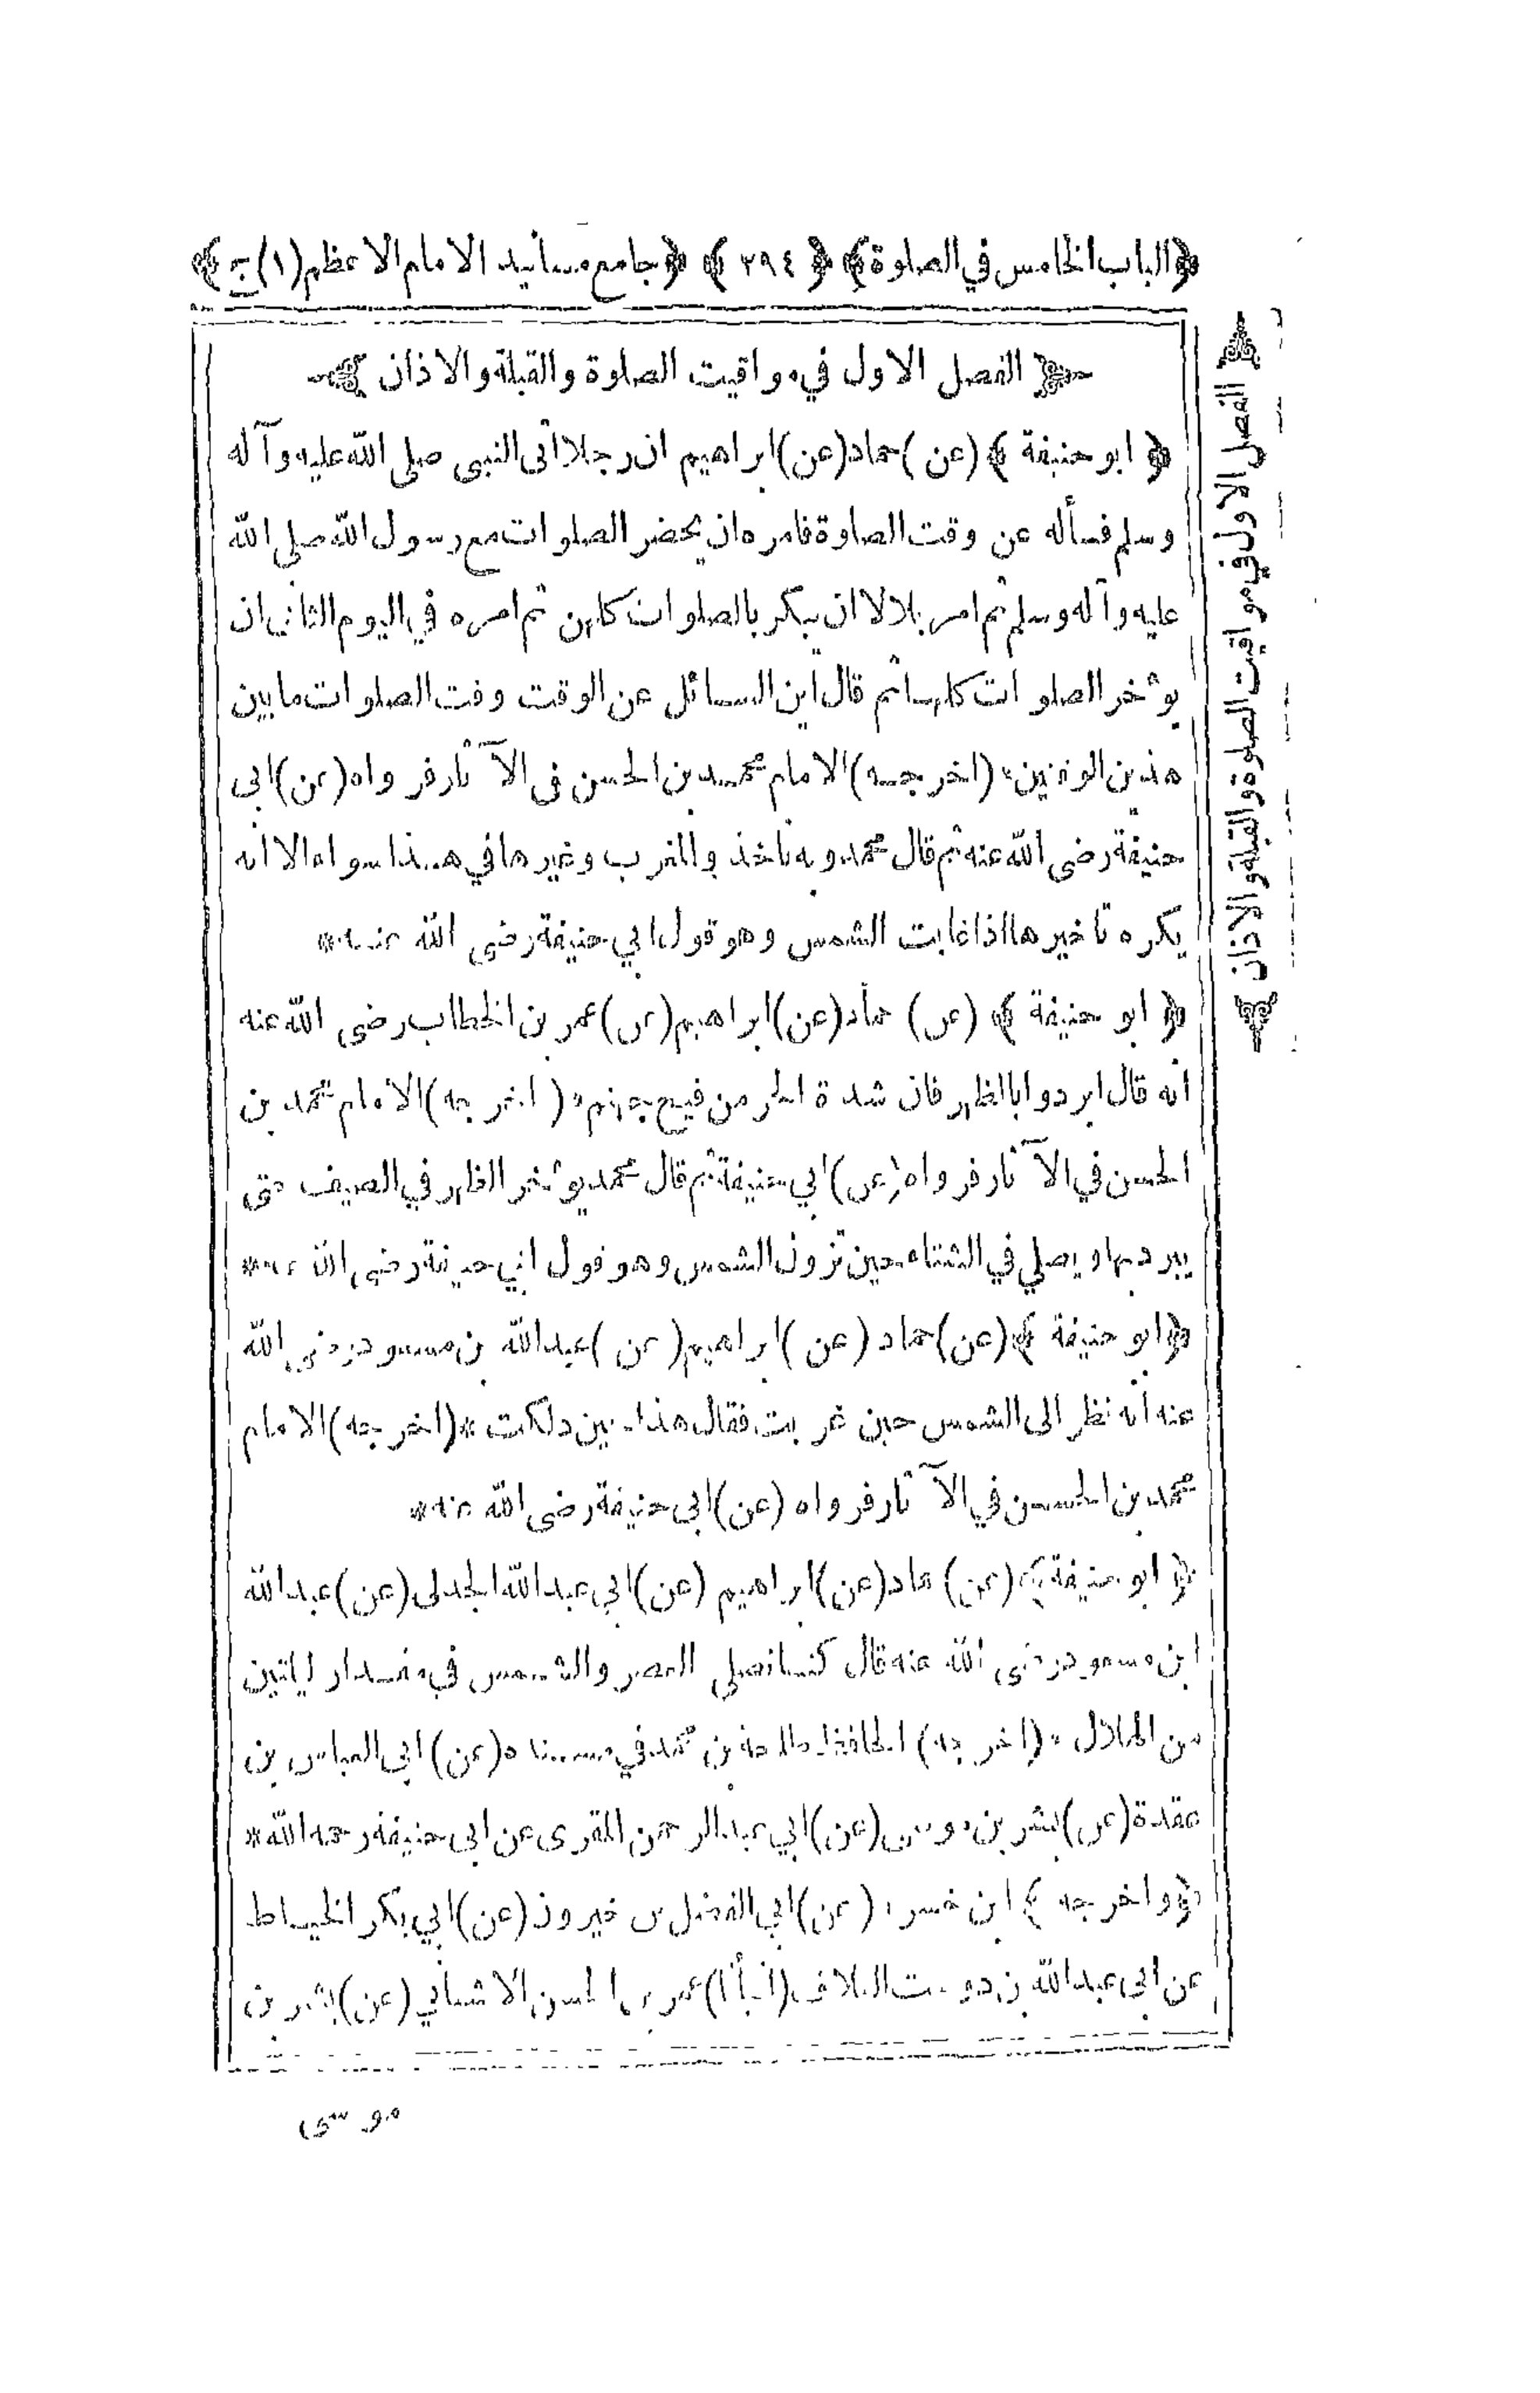 ﴿الباب الخامس في الصلوة﴾ ﴿٢٩٤﴾ ﴿جامع مسانيد الامام الاعظم (١) ج﴾
الفصل الاول في مواقيت الصلوة والقبلة والاذان
﴿ ابو حنيفة ﴾ (عن) حماد (عن) ابراهيم ان رجلا اتى النبى صلى الله عليه وآله
وسلم فسأله عن وقت الصلوة فامره ان يحضر الصلوات مع رسول الله صلى الله
عليه وآله وسلم ثم امر بلالا ان يبكر بالصلوات كلهن ثم امره في اليوم الثاني ان
يؤخر الصلوات كلها ثم قال اين السائل عن الوقت وقت الصلوات ما بين
هذين الوقتين * (اخرجه) الامام محمد بن الحسن فى الآثار فرواه (عن) ابى
حنيفة رضى الله عنه ثم قال محمد وبه ناخذ والمغرب وغيرها في هذا سواء الا انه
يكره تاخيرها اذا غابت الشمس وهو قول ابي حنيفة رضى الله عنه *
﴿ ابو حنيفة ﴾ (عن) حماد (عن) ابراهيم (عن) عمر بن الخطاب رضى الله عنه
انه قال ابردوا بالظهر فان شدة الحر من فيح جهنم * (اخرجه) الامام محمد بن
الحسن في الآثار فرواه (عن) ابي حنيفة ثم قال محمد يؤخر الظهر في الصيف حتى
يبرد بها ويصلي في الشتاء حين تزول الشمس وهو قول ابي حنيفة رضى الله عنه *
﴿ ابو حنيفة ﴾ (عن) حماد (عن) ابراهيم (عن) عبد الله بن مسعود رضى الله
عنه انه نظر الى الشمس حين غربت فقال هذا حين دلكت * (اخرجه) الامام
محمد بن الحسن في الآثار فرواه (عن) ابى حنيفة رضى الله عنه *
﴿ ابو حنيفة ﴾ (عن) حماد (عن) ابراهيم (عن) ابي عبد الله الجدلى (عن) عبد الله
ابن مسعود رضى الله عنه قال كنا نصلى العصر والشمس في مقدار ليلتين
من الهلال * (اخرجه) الحافظ طلحة بن محمد في مسنده (عن) ابى العباس بن
عقدة (عن) بشر بن موسى (عن) ابي عبد الرحمن المقرى عن ابى حنيفة رحمه الله *
﴿ واخرجه ﴾ ابن خسرو (عن) ابي الفضل بن خيرون (عن) ابي بكر الخياط
عن ابى عبد الله بن دوست العلاف (انبأنا) عمر بن الحسن الاشناني (عن) بشر بن
موسى
الفصل الاول في مواقيت الصلوة والقبلة والاذان